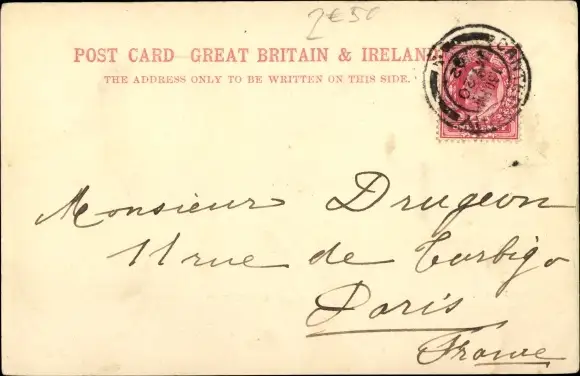 2€50
POST CARD GREAT BRITAIN & IRELAND
THE ADDRESS ONLY TO BE WRITTEN ON THIS SIDE.
Monsieur Drugeon
11 rue de Turbigo
Paris
France